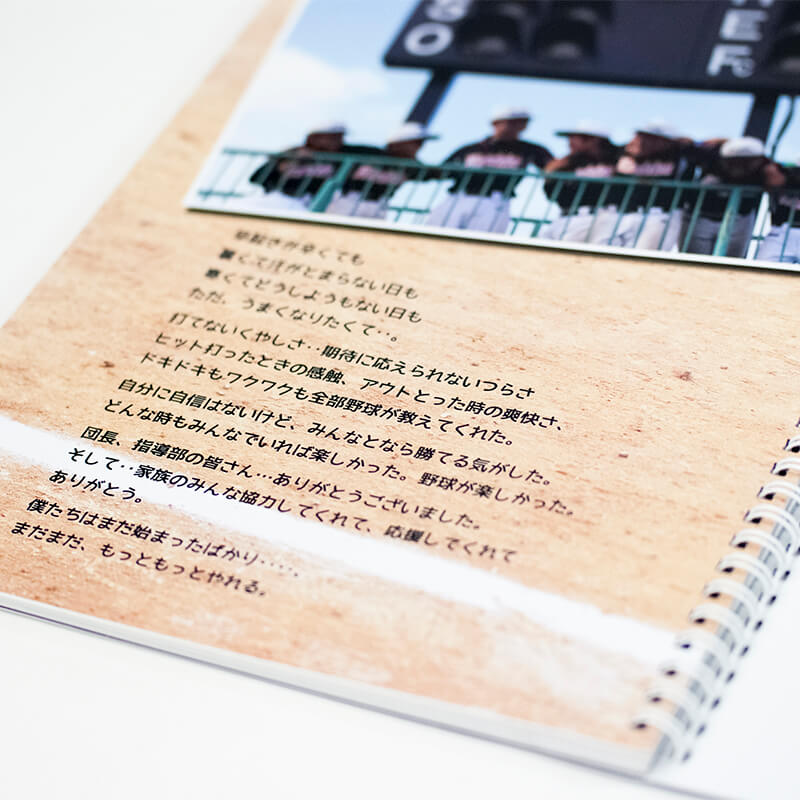 S
O
H
E
Fc
早起きが辛くても
暑くて汗がとまらない日も
寒くてどうしようもない日も
ただ、うまくなりたくて‥。
打てないくやしさ‥期待に応えられないつらさ
ヒット打ったときの感触、アウトとった時の爽快さ、
ドキドキもワクワクも全部野球が教えてくれた。
自分に自信はないけど、みんなとなら勝てる気がした。
どんな時もみんなでいれば楽しかった。野球が楽しかった。
団長、指導部の皆さん…ありがとうございました。
そして‥家族のみんな協力してくれて、応援してくれて
ありがとう。
僕たちはまだ始まったばかり‥‥、
まだまだ、もっともっとやれる。